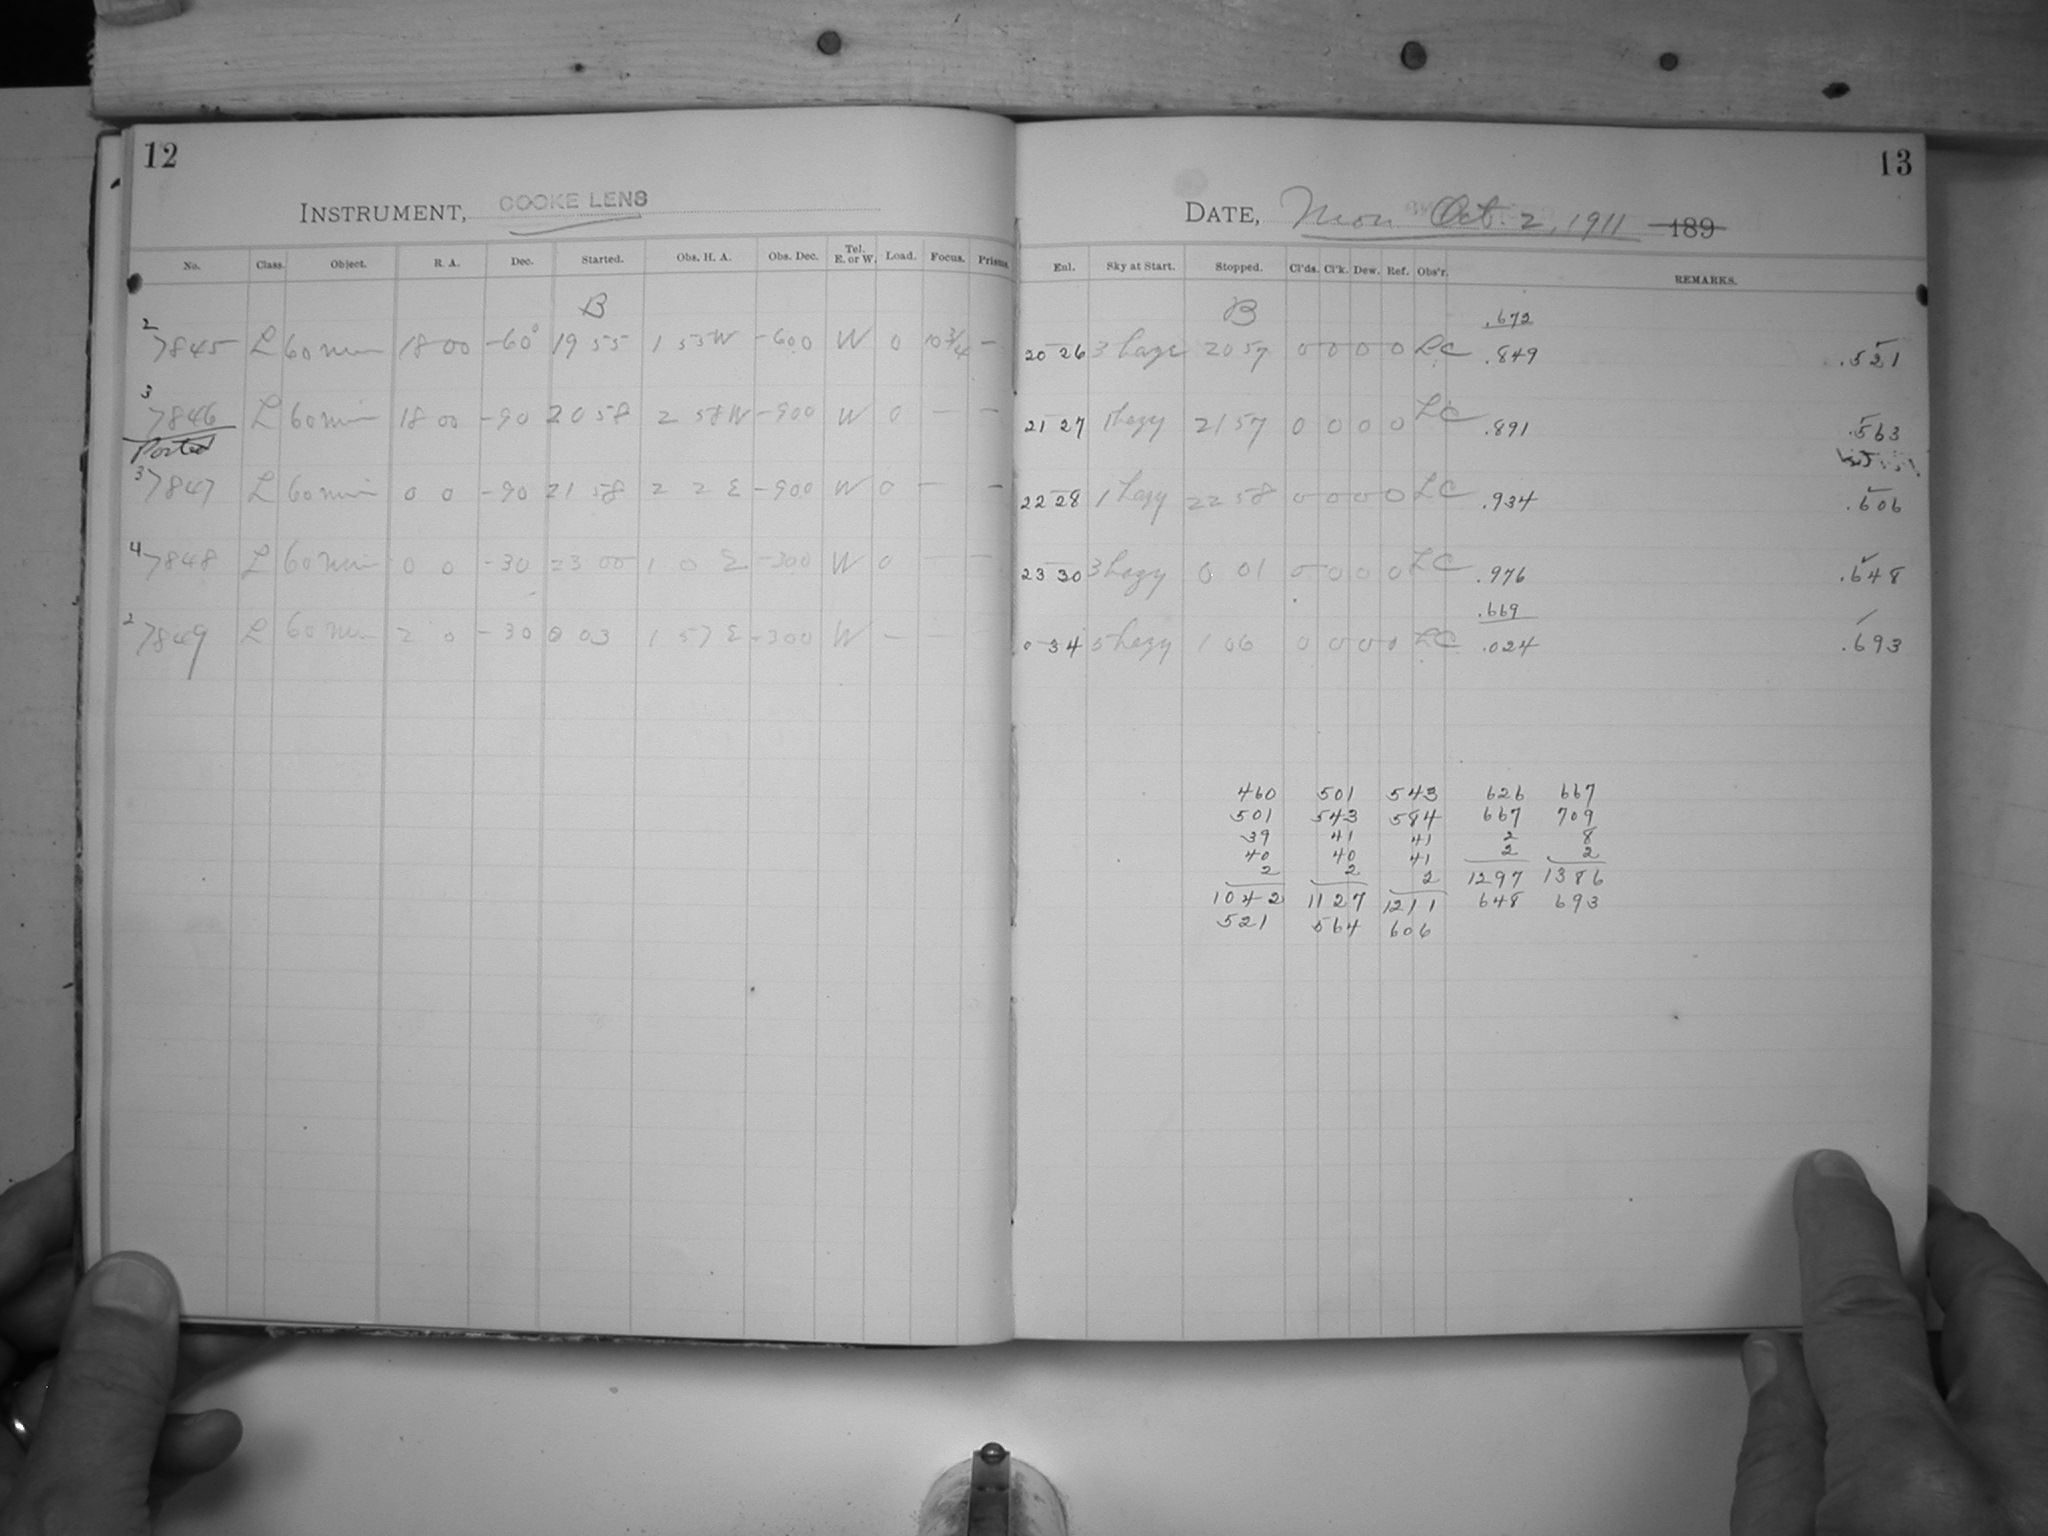 12
INSTRUMENT, COOKE LENS
No. Class. Object. R. A. Dec. Started. Obs. H. A. Obs. Dec. Tel. E. or W. Load. Focus. Prisms.
B
2 7845 L 60 min 18 00 -60° 19 55 1 55 W -600 W 0 10 3/4 —
3 7846 L 60 min 18 00 -90 20 58 2 58 W -900 W 0 — —
Posted
3 7847 L 60 min 0 0 -90 21 58 2 2 E -900 W 0 — —
4 7848 L 60 min 0 0 -30 23 00 1 0 E -300 W 0 — —
2 7849 L 60 min 2 0 -30 0 03 1 57 E -300 W — —
13
DATE, Mon Oct. 2, 1911 189
Enl. Sky at Start. Stopped. Cl'ds. Cl'k. Dew. Ref. Obs'r. REMARKS.
B .672
20 26 3 haze 20 57 0 0 0 0 LC .849 .521
21 27 1 hazy 21 57 0 0 0 0 LC .891 .563
22 28 1 hazy 22 58 0 0 0 0 LC .934 .606
23 30 3 hazy 0 01 0 0 0 0 LC .976 .648
.669
0 34 5 hazy 1 06 0 0 0 0 LC .024 .693
460 501 543 626 667
501 543 584 667 709
39 41 41 2 8
40 40 41 2 2
2 2 2 1297 1386
1042 1127 1211 648 693
521 564 606